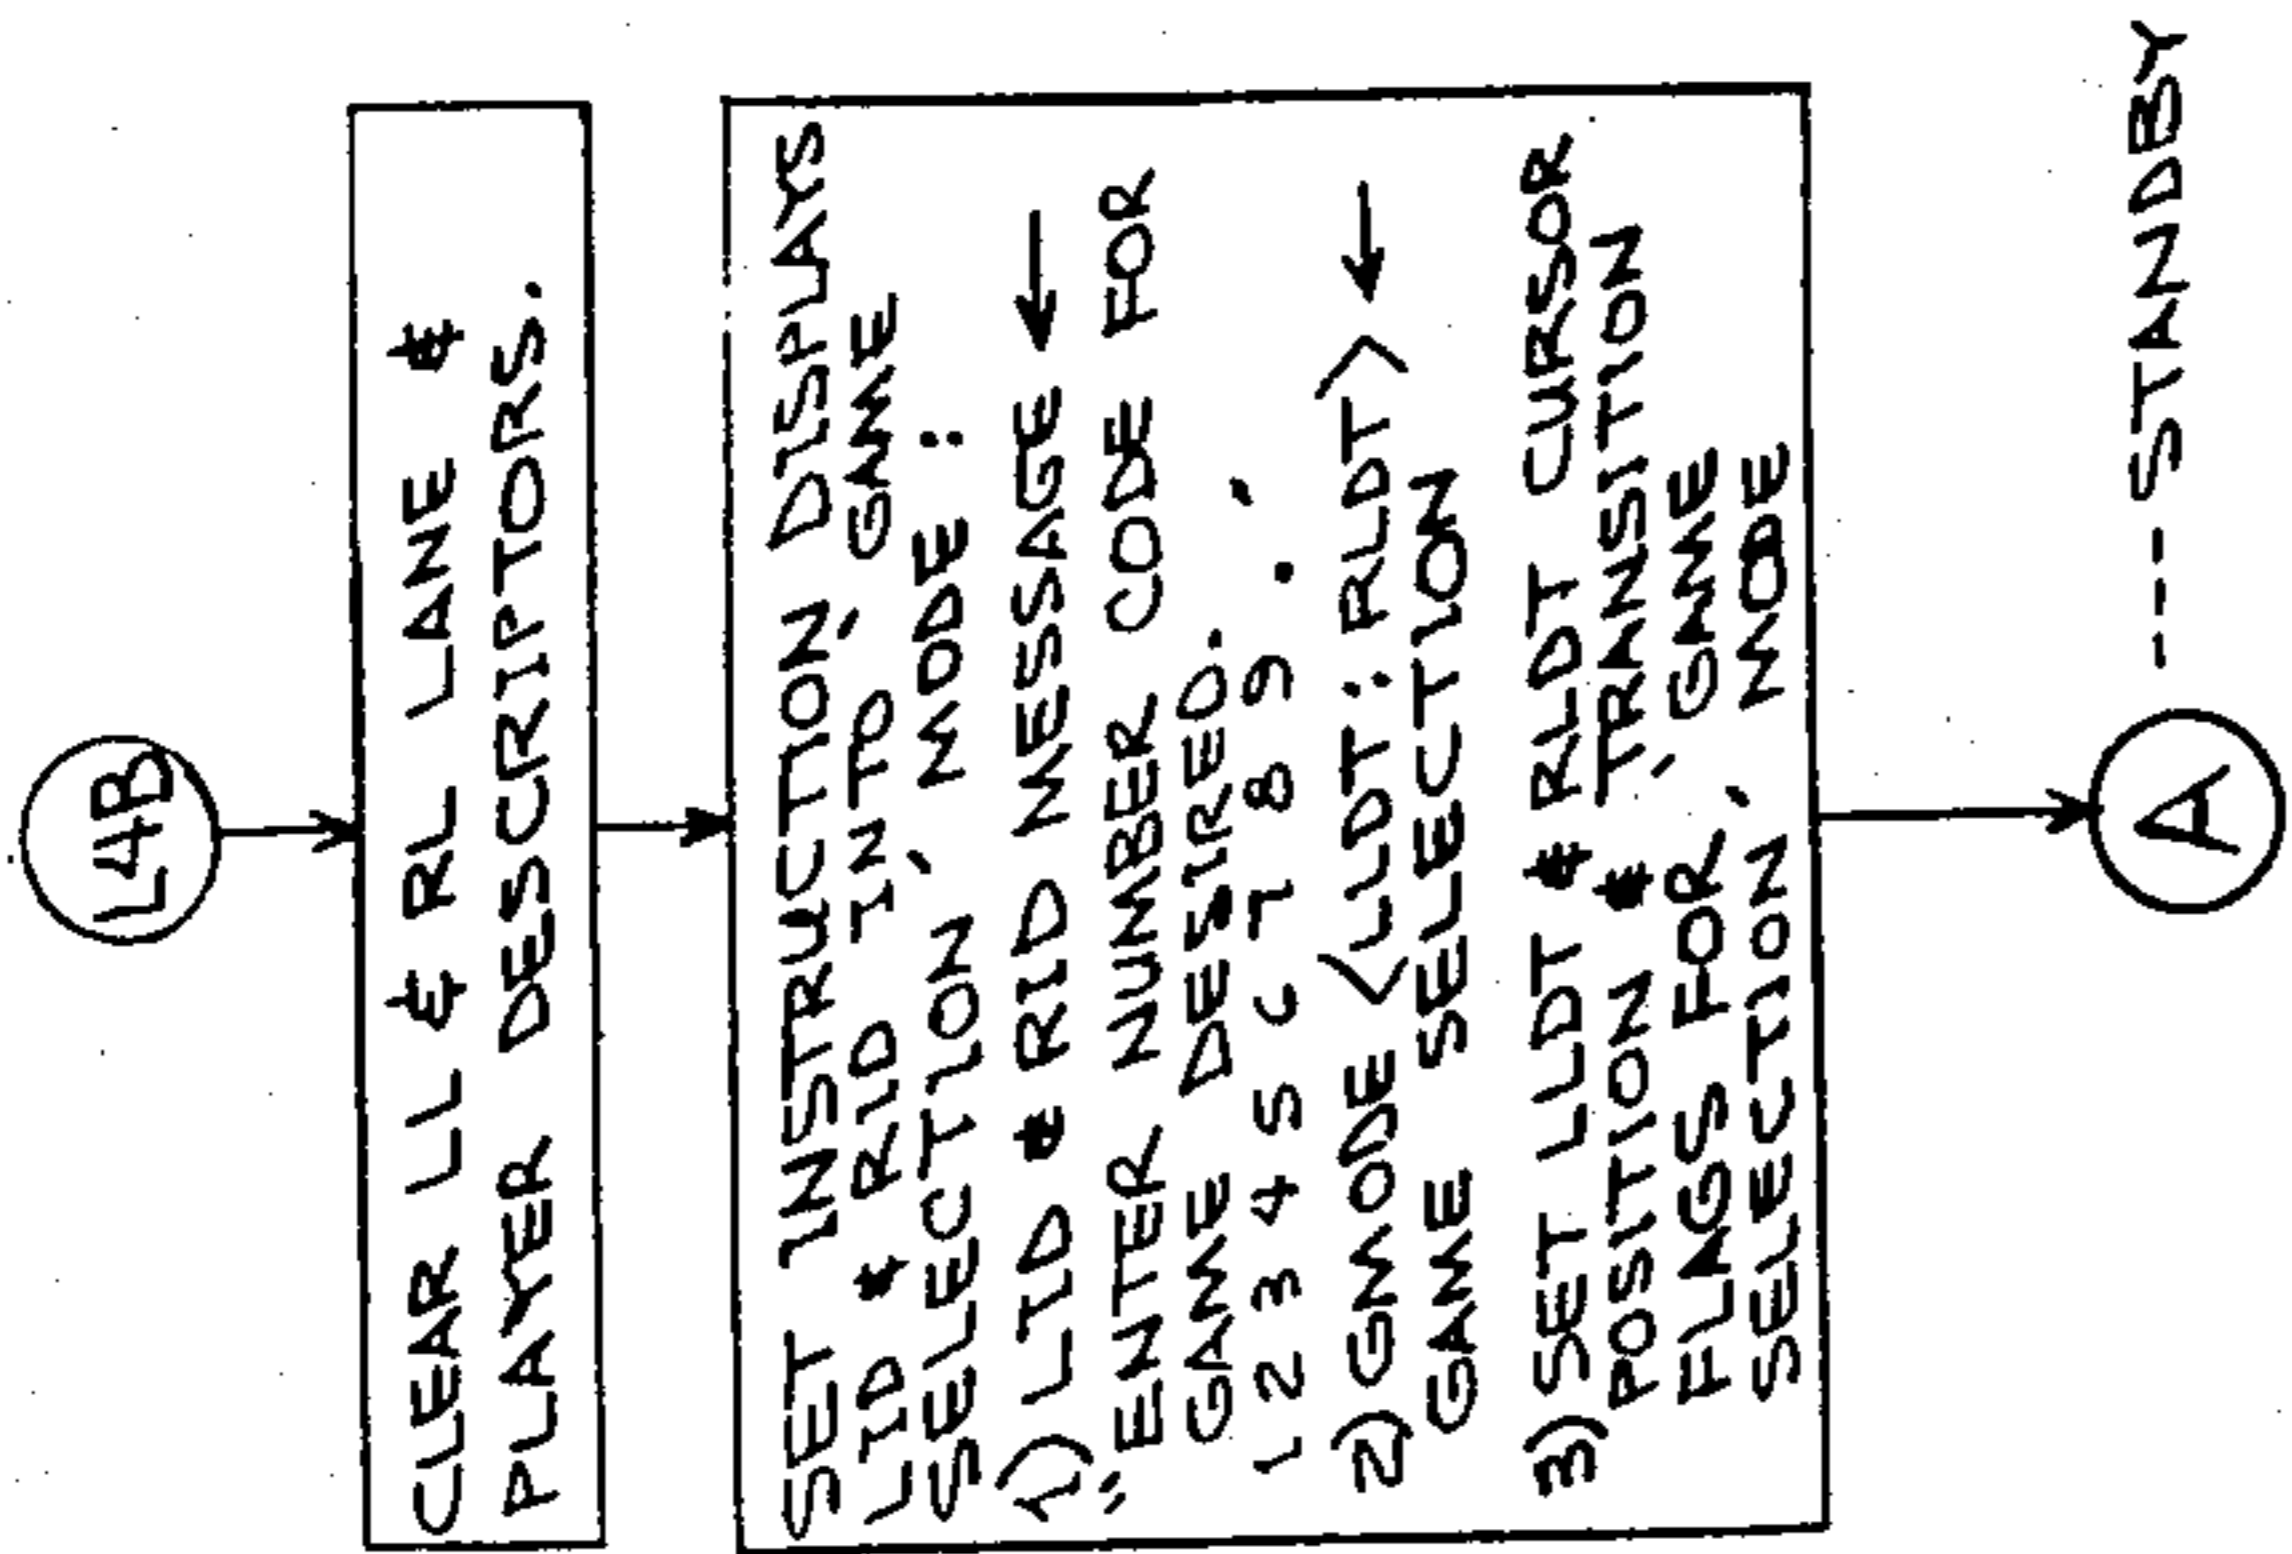 L4B
CLEAR LL & RL LANE &
PLAYER DESCRIPTORS.
SET INSTRUCTION DISPLAYS
LID & RID INTO 'GAME
SELECTION' MODE:
1) LID & RID MESSAGE ←
"ENTER NUMBER CODE FOR
GAME DESIRED.
1 2 3 4 5 6 7 8 9 . "
2) GMODE <LLDT: RLDT> ←
GAME SELECTION
3) SET LLDT & RLDT CURSOR
POSITION & TRANSITION
FLAGS FOR 'GAME
SELECTION' MODE
A --- STANDBY